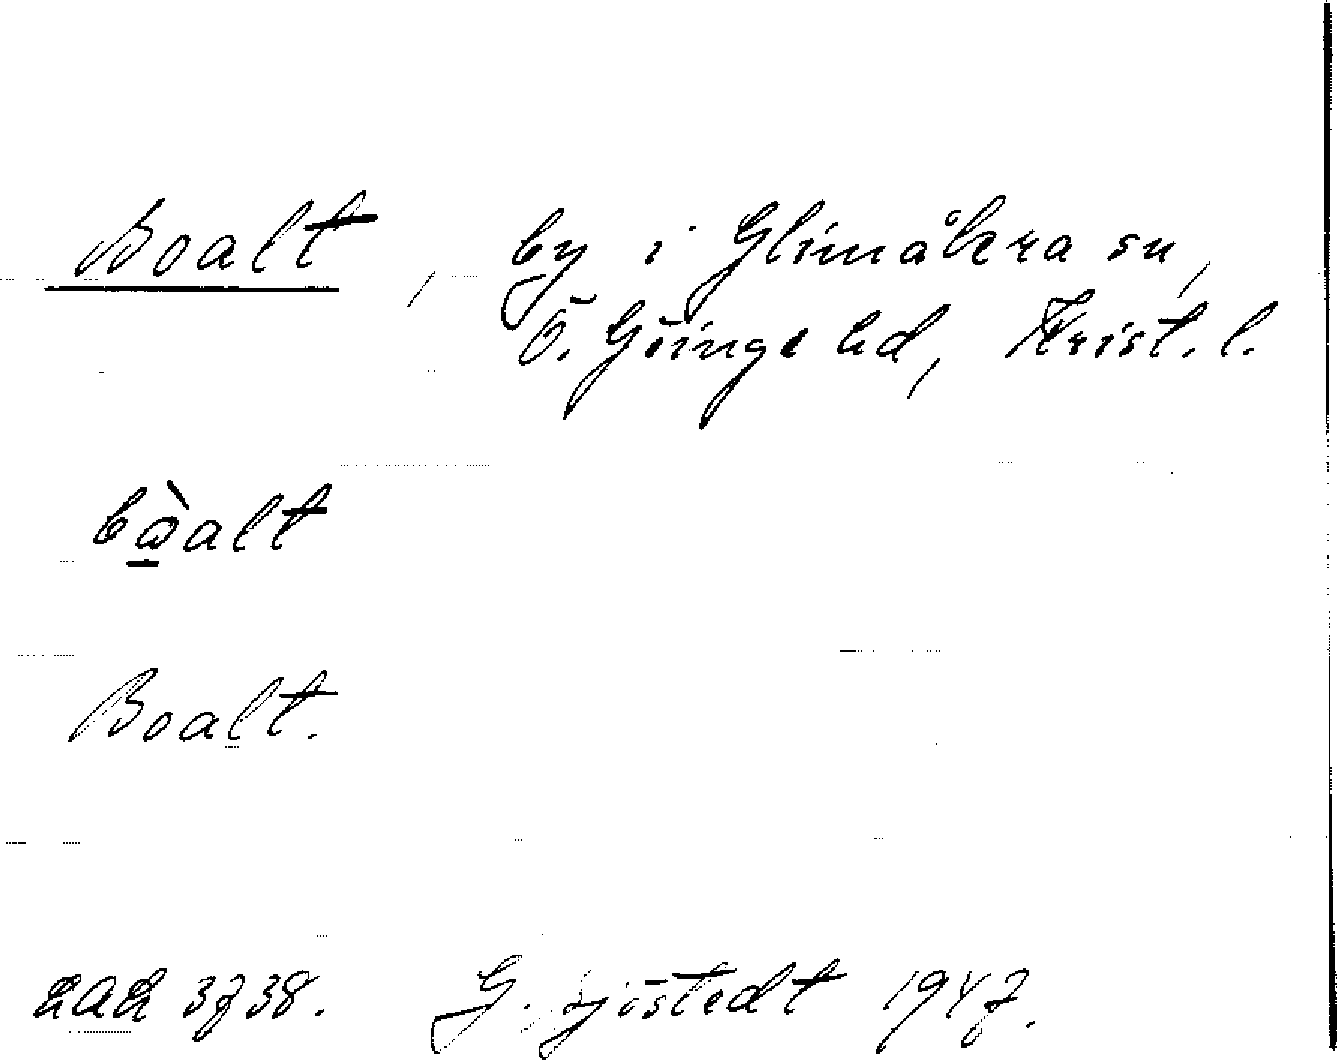 Boalt, by i Glimåkra sn,
Ö. Göinge hd, Krist. l.
bò̱alt
Boalt.
LAL 3738. G. Sjöstedt 1947.